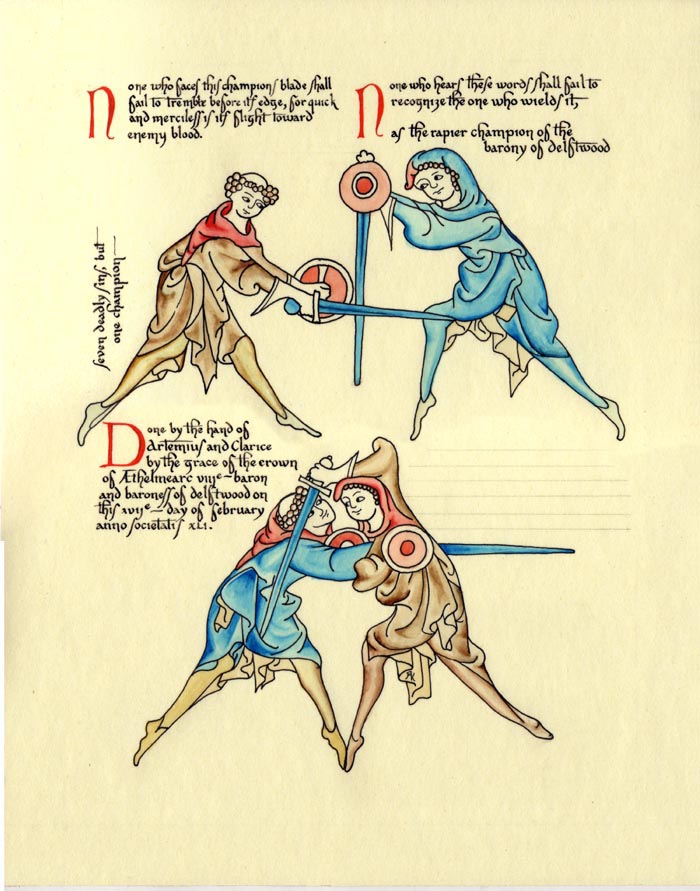 None who faces this champions blade shall
fail to tremble before its edge, for quick
and merciless is its flight toward
enemy blood.
None who hears these words shall fail to
recognize the one who wields it,
as the rapier champion of the
barony of delftwood
seven deadly sins but
one champion—
Done by the hand of
Artemius and Clarice
by the grace of the crown
of Æthelmearc viiie – baron
and baroness of delftwood on
this xviie – day of february
anno societatis xli.